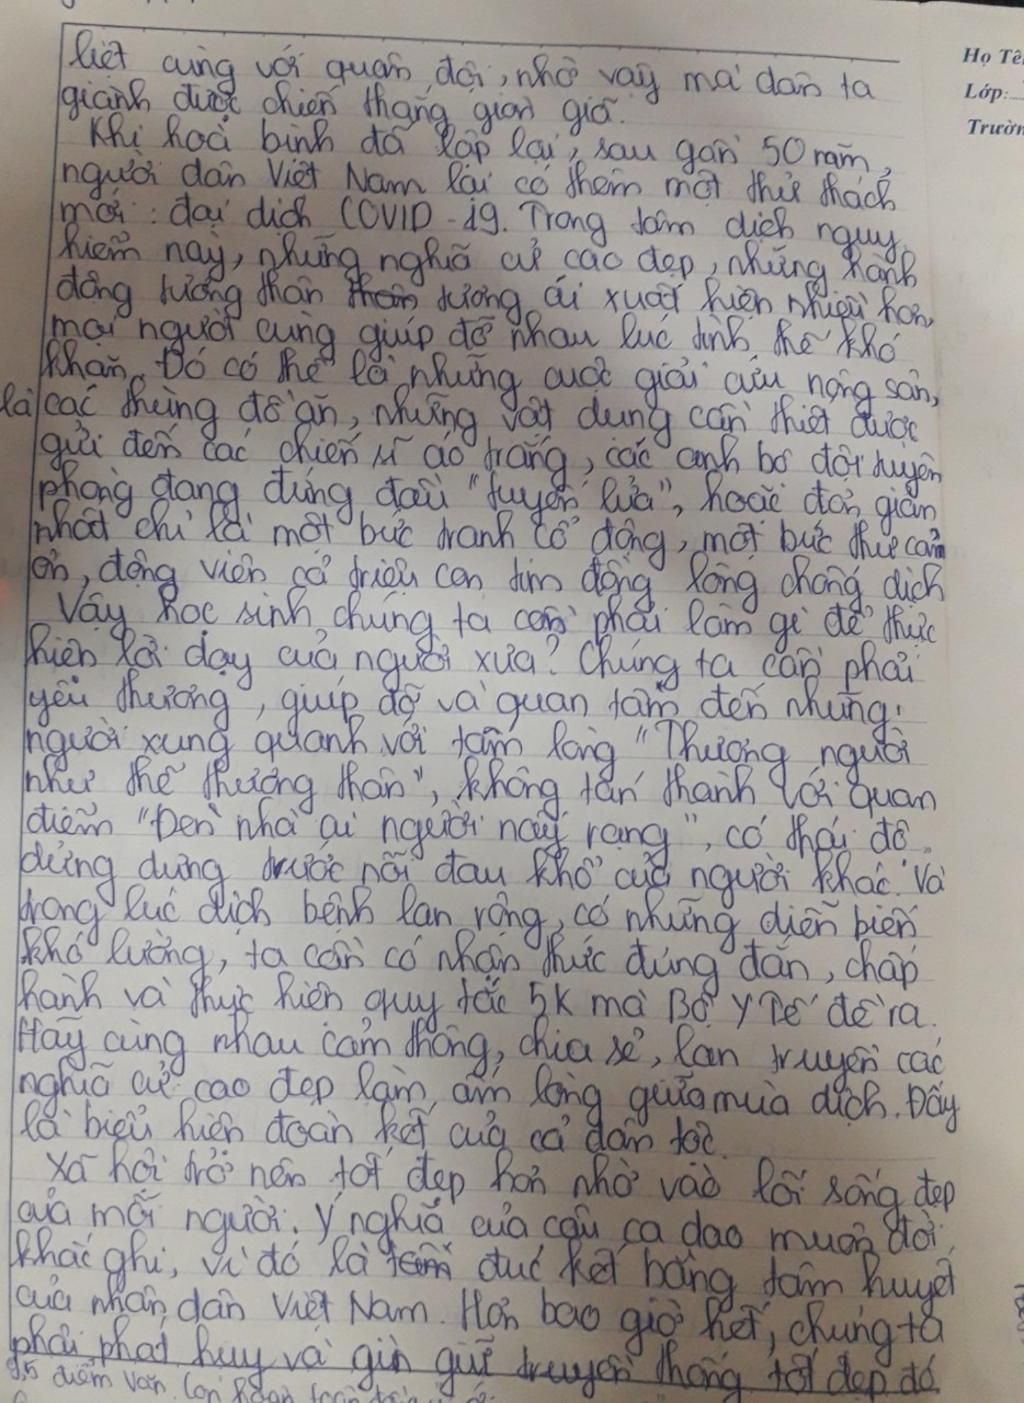 liệt cùng với quân đội, nhờ vậy mà dân ta
giành được chiến thắng gian giã.
Khi hoà bình đã lập lại, sau gần 50 năm,
người dân Việt Nam lại có thêm một thử thách
mới: đại dịch COVID-19. Trong tâm dịch nguy
hiểm này, những nghĩa cử cao đẹp, những hành
động tương thân tương ái xuất hiện nhiều hơn,
mọi người cùng giúp đỡ nhau lúc tình thế khó
khăn. Đó có thể là những cuộc giải cứu nông sản,
là các thùng đồ ăn, những vật dụng cần thiết được
gửi đến các chiến sĩ áo trắng, các anh bộ đội tuyên
phòng đang đứng đầu "tuyến lửa", hoặc đơn giản
nhất chỉ là một bức tranh cổ động, một bức thư cảm
ơn, động viên cả triệu con tim đồng lòng chống dịch
Vậy học sinh chúng ta cần phải làm gì để thực
hiện lời dạy của người xưa? Chúng ta cần phải
yêu thương, giúp đỡ và quan tâm đến những
người xung quanh với tấm lòng "Thương người
như thể thương thân", không tán thành với quan
điểm "Đèn nhà ai người nấy rạng", có thái độ
dửng dưng trước nỗi đau khổ của người khác. Và
trong lúc dịch bệnh lan rộng, có những diễn biến
khó lường, ta cần có nhận thức đúng đắn, chấp
hành và thực hiện quy tắc 5K mà Bộ Y Tế đề ra.
Hãy cùng nhau cảm thông, chia sẻ, lan truyền các
nghĩa cử cao đẹp làm ấm lòng giữa mùa dịch. Đấy
là biểu hiện đoàn kết của cả dân tộc.
Xã hội trở nên tốt đẹp hơn nhờ vào lối sống đẹp
của mỗi người. Ý nghĩa của câu ca dao muôn đời
khắc ghi, vì đó là đúc kết bằng tâm huyết
của nhân dân Việt Nam. Hơn bao giờ hết, chúng ta
phải phát huy và gìn giữ truyền thống tốt đẹp đó.
9,5 điểm văn
Họ Tê
Lớp:
Trườn